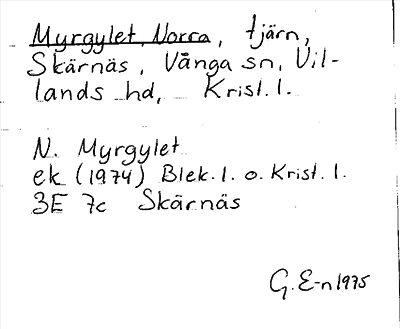 Myrgylet, Norra, tjärn,
Skärnäs, Vånga sn, Vil-
lands hd, Krist. l.
N. Myrgylet
ek (1974) Blek. l. o. Krist. l.
3E 7c Skärnäs
G. E-n 1975